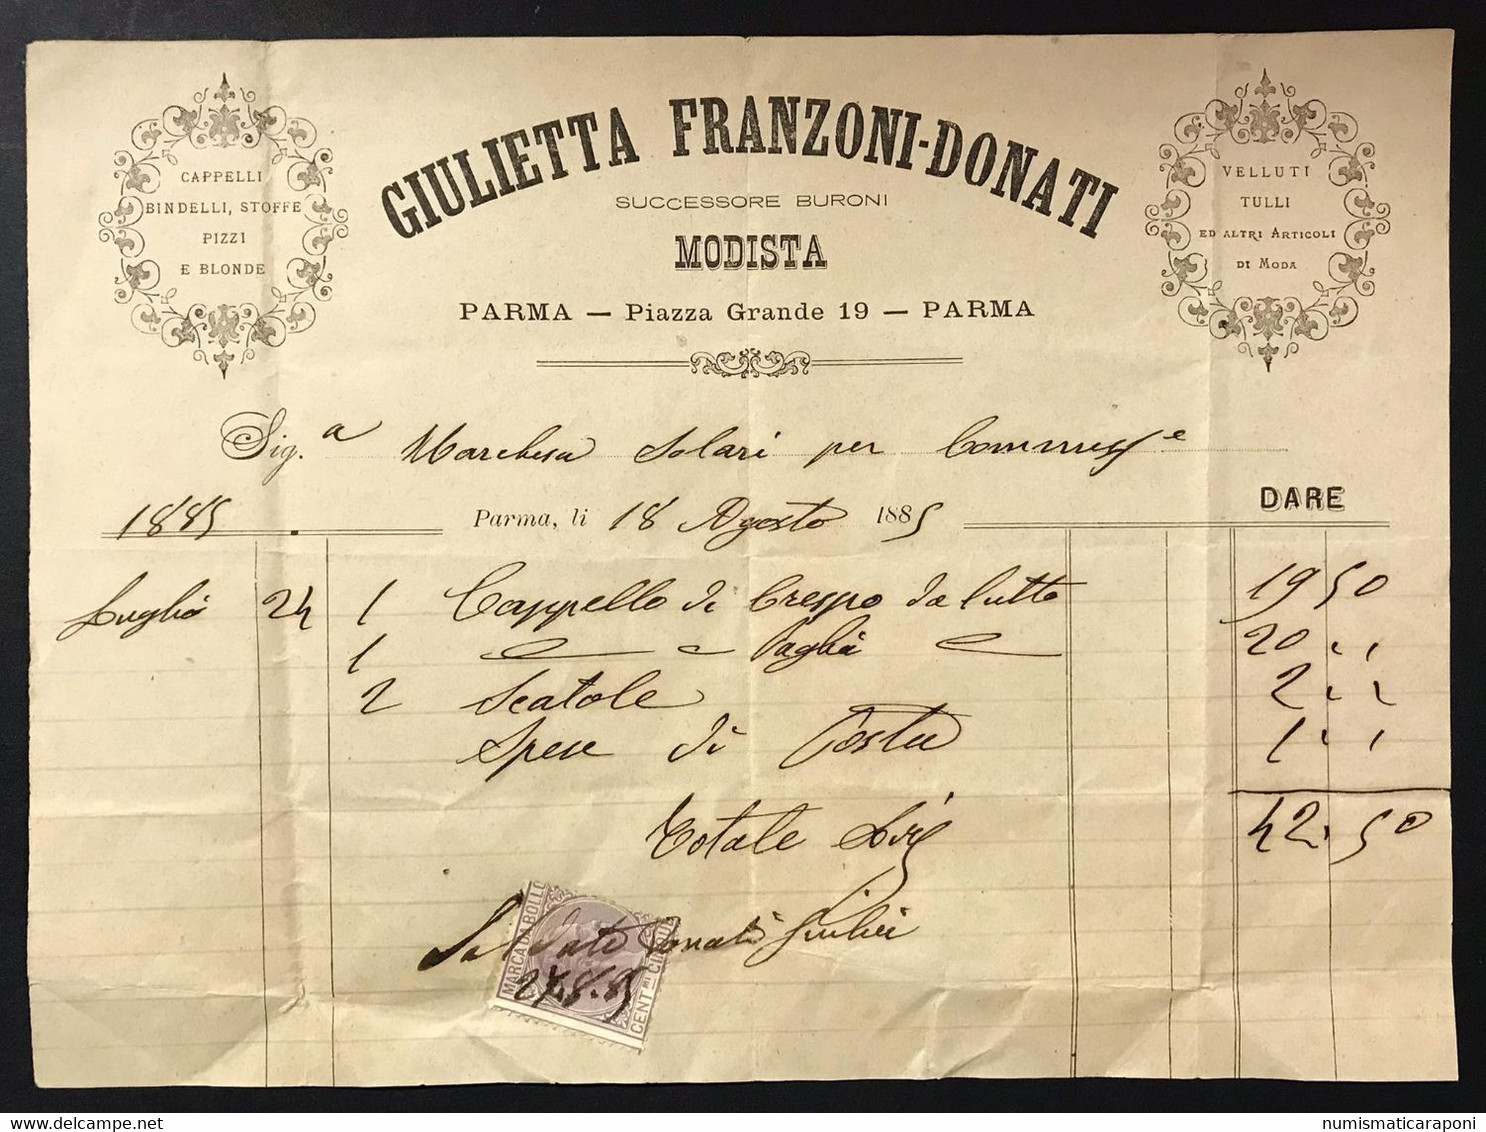 CAPPELLI
BINDELLI, STOFFE
PIZZI
E BLONDE
GIULIETTA FRANZONI-DONATI
SUCCESSORE BURONI
MODISTA
PARMA — Piazza Grande 19 — PARMA
VELLUTI
TULLI
ED ALTRI ARTICOLI
DI MODA
Sig.a Marchesa Solari per Commisse
1885. Parma, li 18 Agosto 1885 DARE
Luglio 24 1 Cappello di Crespo da lutto 19 50
1 " " Paglia " 20 " "
2 Scatole 2 " "
Spese di Posta 1 " "
Totale Lire 42.50
Saldato Donati Giulia
27.8.85
MARCA DA BOLLO
CENT.MI CINQUE
numismaticaraponi